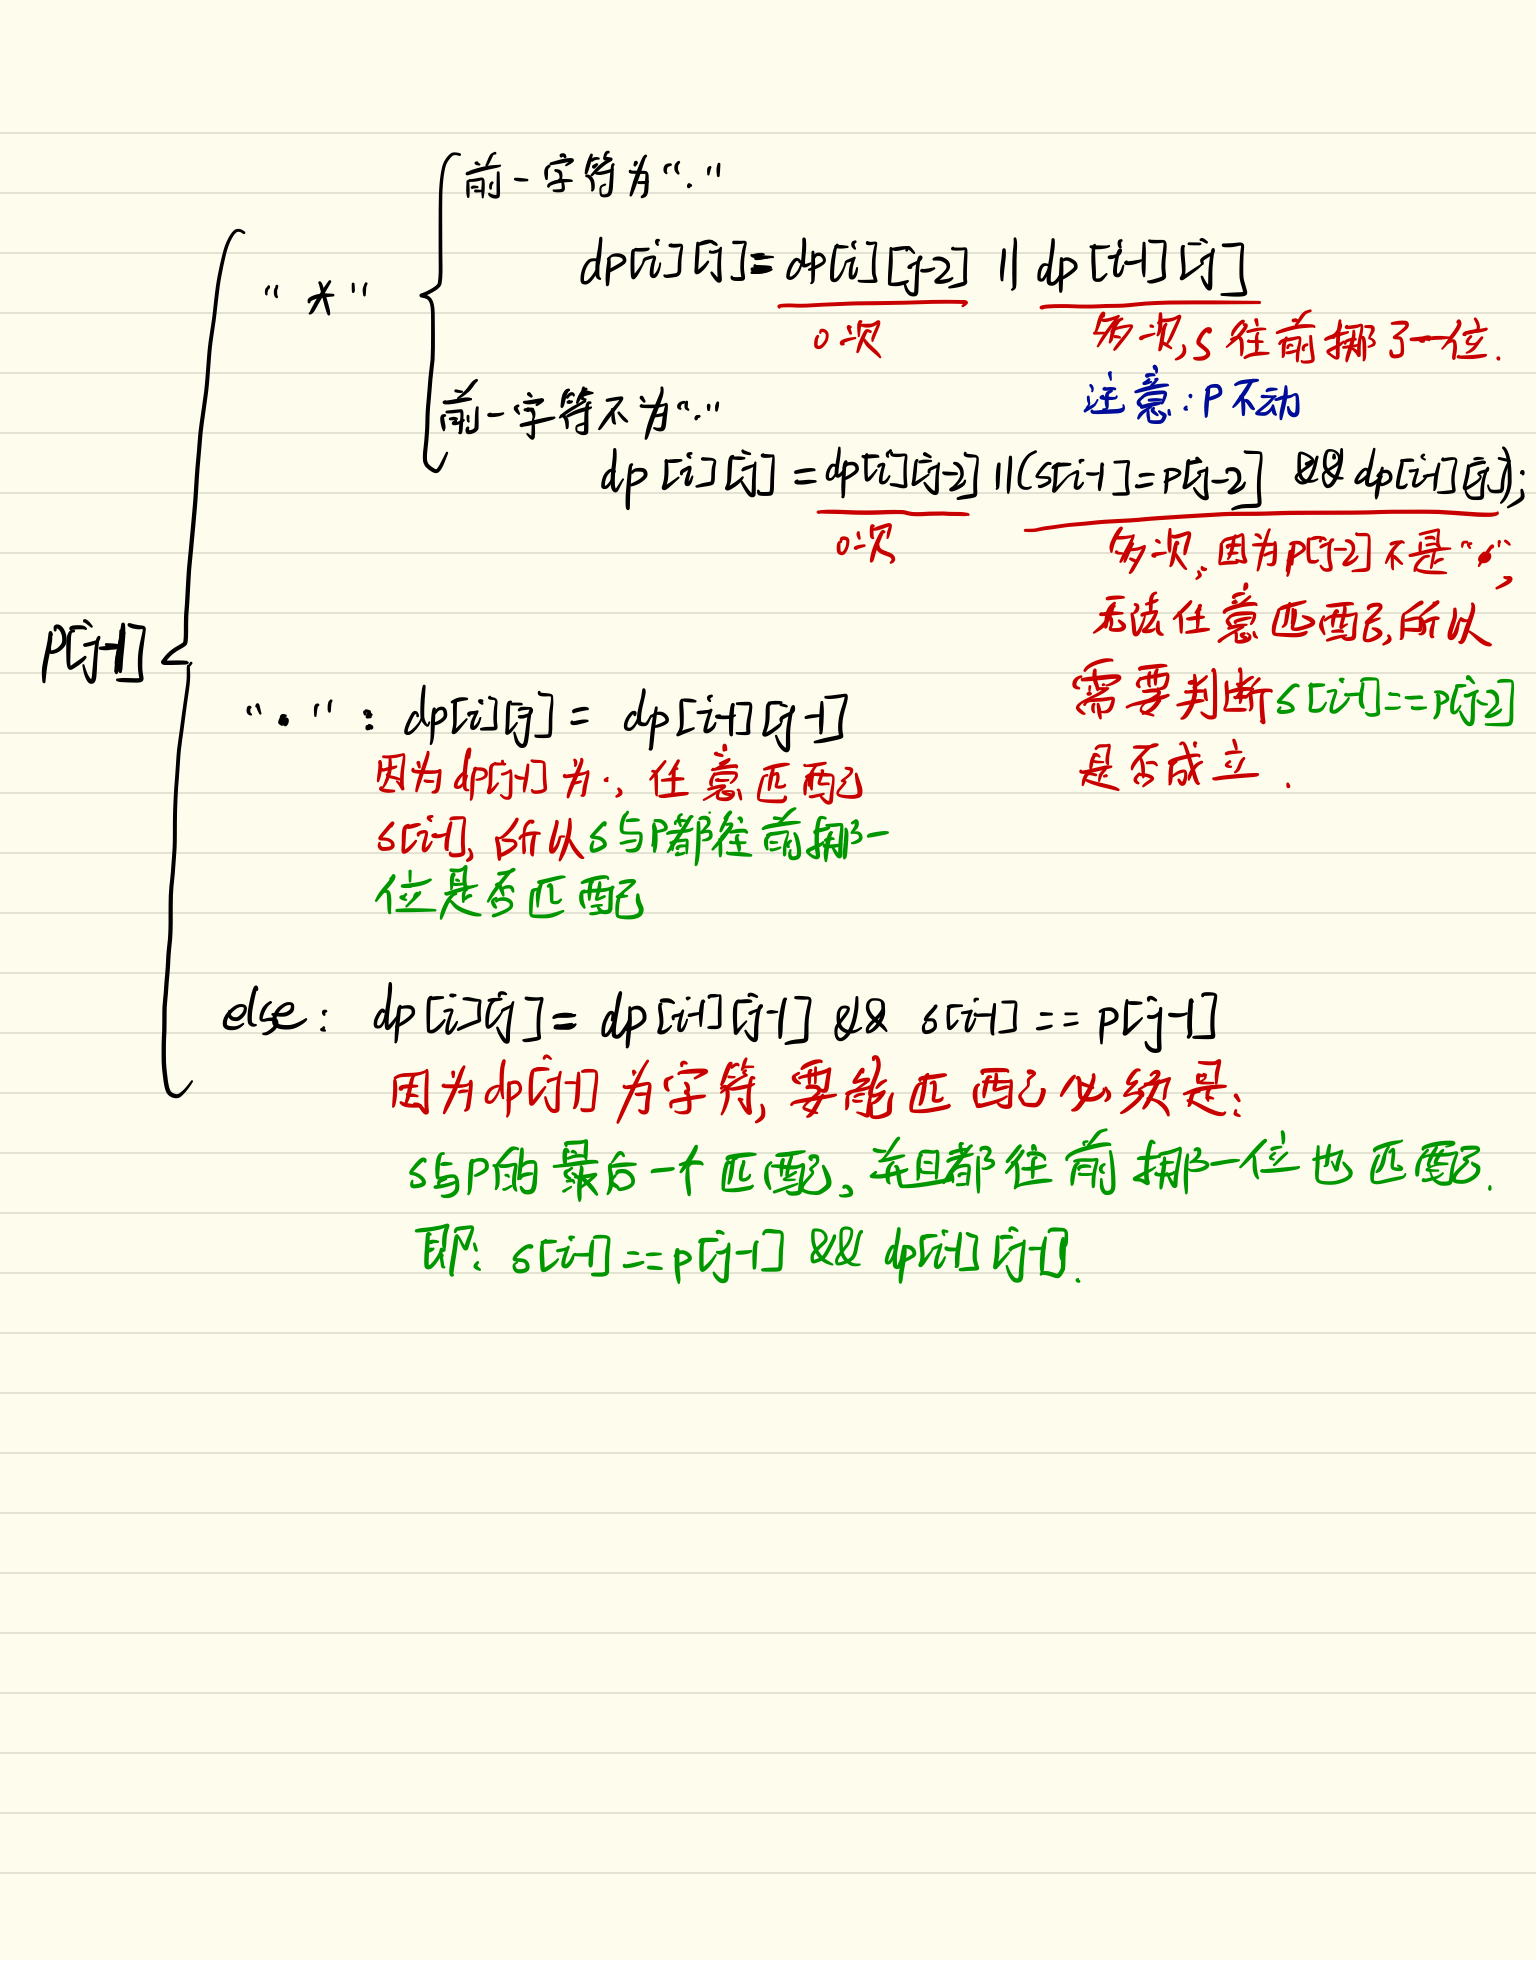 前一字符为“.”
dp[i][j]=dp[i][j-2] || dp[i-1][j]
“*”
0次
多次,s往前挪了一位.
注意:P不动
前一字符不为“.”
dp[i][j]=dp[i][j-2] ||(s[i-1]=p[j-2] && dp[i-1][j]);
0次
多次,因为p[j-2]不是“.”,
无法任意匹配,所以
需要判断s[i-1]==p[j-2]
是否成立.
p[j-1]
“.”: dp[i][j]= dp[i-1][j-1]
因为dp[j-1]为.,任意匹配
s[i-1],所以s与P都往前挪一
位是否匹配
else: dp[i][j]= dp[i-1][j-1] && s[i-1]==p[j-1]
因为dp[j-1]为字符,要能匹配必须是:
s与P的最后一个匹配,并且都往前挪一位也匹配.
即: s[i-1]==p[j-1] && dp[i-1][j-1].